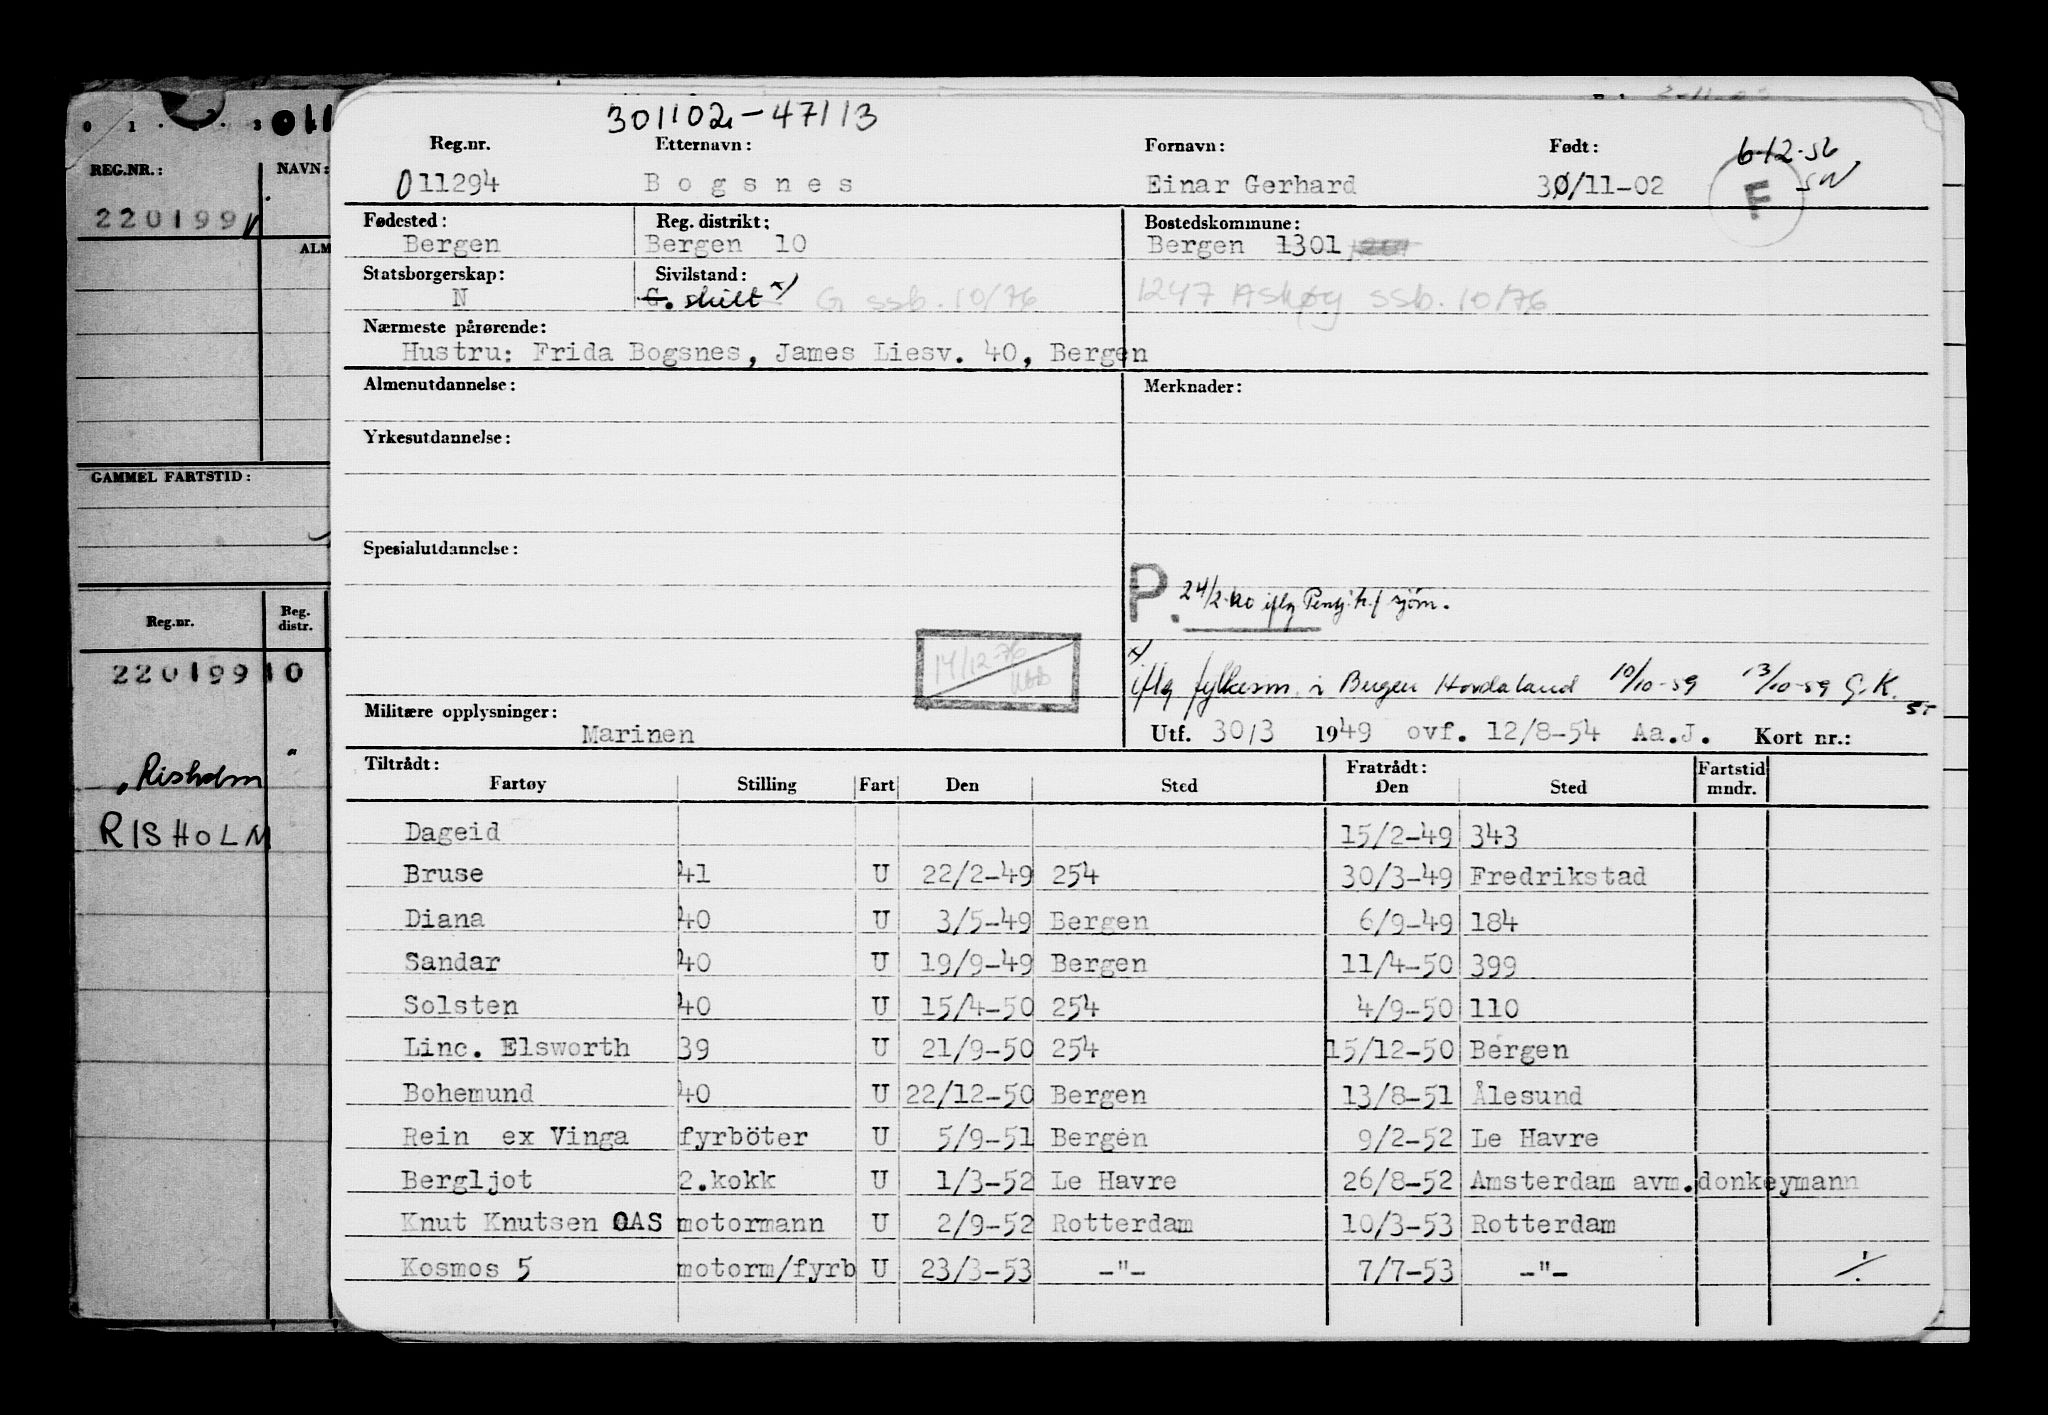 301102-47113
Reg.nr. Etternavn: Fornavn: Født: 6-12-56
011294 Bogsnes Einar Gerhard 30/11-02 F SW
Fødested: Reg. distrikt: Bostedskommune:
Bergen Bergen 10 Bergen 1301
Statsborgerskap: Sivilstand:
N G. skilt x) G ssb. 10/76 1247 Askøy ssb. 10/76
Nærmeste pårørende:
Hustru: Frida Bogsnes, James Liesv. 40, Bergen
Almenutdannelse: Merknader:
Yrkesutdannelse:
Spesialutdannelse:
P. 24/2 iflg Pentj. h. f sjøm.
14/12-76
x) iflg fylkesm. i Bergen Hordaland 10/10-59 13/10-59 G.K.
Militære opplysninger:
Marinen Utf. 30/3 1949 ovf. 12/8-54 Aa.J. Kort nr.:
Tiltrådt: Fratrådt: Fartstid
Fartøy Stilling Fart Den Sted Den Sted mndr.
Dageid 15/2-49 343
Bruse 41 U 22/2-49 254 30/3-49 Fredrikstad
Diana 40 U 3/5-49 Bergen 6/9-49 184
Sandar 40 U 19/9-49 Bergen 11/4-50 399
Solsten 40 U 15/4-50 254 4/9-50 110
Linc. Elsworth 39 U 21/9-50 254 15/12-50 Bergen
Bohemund 40 U 22/12-50 Bergen 13/8-51 Ålesund
Rein ex Vinga fyrböter U 5/9-51 Bergen 9/2-52 Le Havre
Bergljot 2.kokk U 1/3-52 Le Havre 26/8-52 Amsterdam avm.donkeymann
Knut Knutsen OAS motormann U 2/9-52 Rotterdam 10/3-53 Rotterdam
Kosmos 5 motorm/fyrb U 23/3-53 -"- 7/7-53 -"-
011
REG.NR.: NAVN:
220199
ALM
GAMMEL FARTSTID:
Reg.nr. Reg. distr.
220199 10
Risholm "
RISHOLM